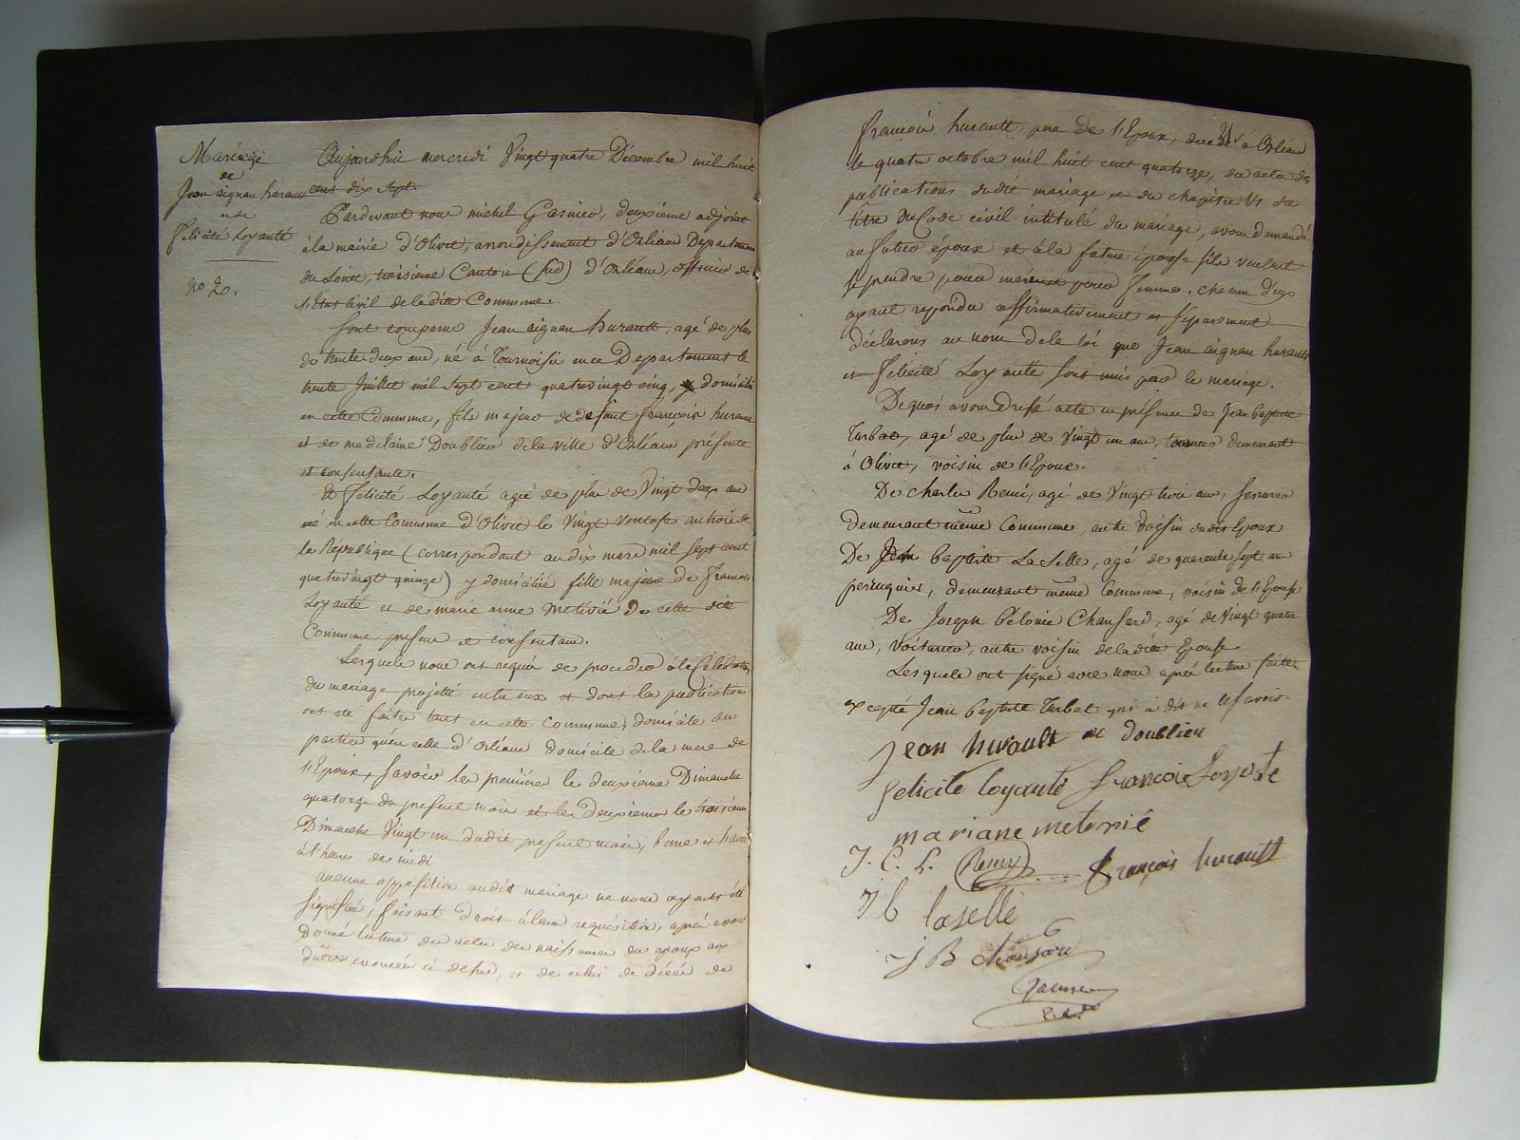 Mariage
de
Jean aignan huraut
avec
Félicité Loyauté
No 20.
Aujourdhui mercredi Vingt quatre Décembre mil huit
cent dix sept.
Pardevant nous michel Garnier, deuxième adjoint
à la mairie d'Olivet, arrondissement d'Orléans Departement
du Loiret, troisieme Canton (sud) d'Orléans, officier de
l'Etat Civil de ladite Commune.
Sont comparus Jean aignan hurault, agé de plus
de trente deux ans, né à Tournoisie en ce Departement le
trente Juillet mil sept cent quatrevingt cinq, y domicilié
en cette Commune, fils majeur de defunt françois huraut
et de madelaine Doublieu de la ville d'Orléans, présente
et consentante.
Et Felicité Loyauté agée de plus de Vingt deux ans
née en cette Commune d'Olivet le Vingt Ventose an trois de
la Republique (correspondant au dix mars mil sept cent
quatrevingt quinze) y domiciliée fille majeure de François
Loyauté et de marie anne metivié de cette dite
Commune present et consentans.
Lesquels nous ont requis de proceder à la Célébration
du mariage projetté entre eux et dont les publications
ont été faites tant en cette Commune, domicile des
parties qu'en celle d'Orléans domicile de la mere de
l'Epoux, savoir la première le deuxième Dimanche
quatorze du present mois et la Deuxieme le troisieme
Dimanche Vingt un dudit present mois,
à l'heure de midi
aucune opposition audit mariage ne nous ayant été
signifiée, faisant droit à leur requisition, après avoir
donné lecture des actes de naissance des epoux aux
dattes enoncées ci dessus, et de celui de décès de
François hurault, pere de l'Epoux, décédé à Orléans
le quatre octobre mil huit cent quatorze, des actes de
publications dudit mariage et du chapitre VI du
titre du Code civil intitulé du mariage, avons demandé
au futur époux et à la future épouse s'ils veulent
se prendre pour mari et pour femme. chacun d'eux
ayant repondu affirmativement et separement
déclarons au nom de la loi que Jean aignan huraut
et Felicité Loyauté sont unis par le mariage.
De quoi avons dressé acte en présence de Jean baptiste
Turbat, agé de plus de Vingt un ans, demeurant
à Olivet, voisin de l'Epoux.
De charles Remi, agé de Vingt trois ans,
demeurant même Commune, autre voisin dudit Epoux
De Jean baptiste Laselle, agé de quarante sept ans
perruquier, demeurant même Commune, voisin de l'Epouse
De Joseph Chanferd, agé de Vingt quatre
ans, voiturier, autre voisin de ladite Epouse
Lesquels ont signé avec nous après lecture faite
excepté Jean baptiste Turbat qui a dit ne le savoir
Jean hurault et doublieu
felicite loyauté françois Loyoté
mariane metivié
J. C. L. Remy françois hurault
J b laselle
J B
Garnier